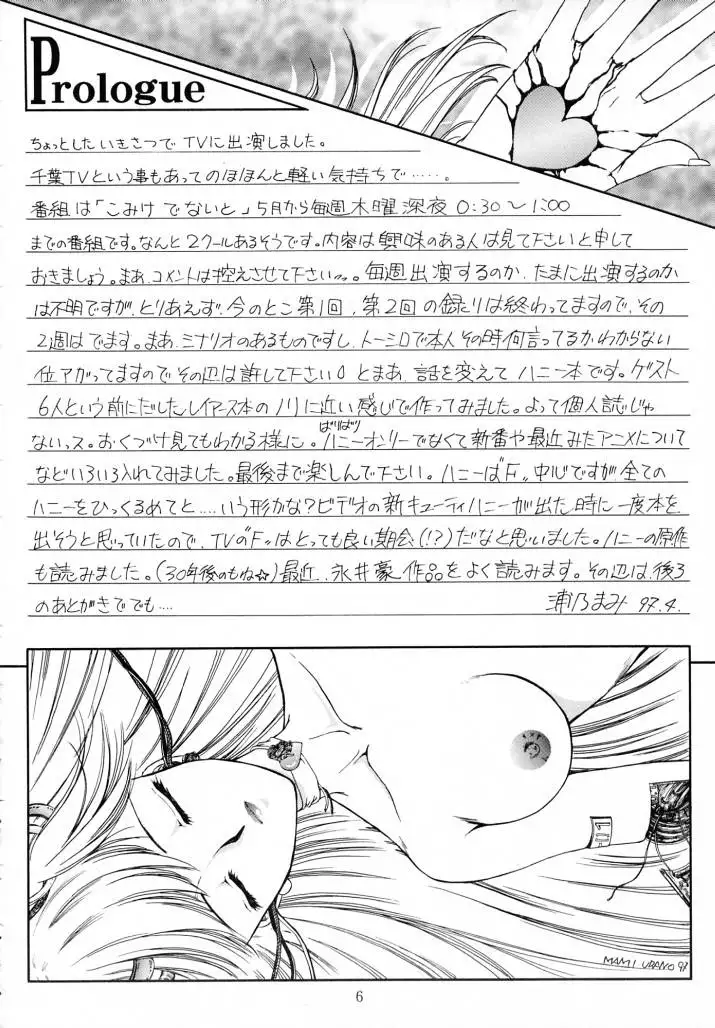 Prologue
ちょっとしたいきさつでTVに出演しました。
千葉TVという事もあってのほほんと軽い気持ちで‥‥‥。
番組は「こみけでないと」5月から毎週木曜深夜0:30〜1:00
までの番組です。なんと2クールあるそうです。内容は興味のある人は見て下さいと申して
おきましょう。まあ、コメントは控えさせて下さい。毎週出演するのか、たまに出演するのか
は不明ですが、とりあえず、今のとこ第1回、第2回の録りは終わってますので、その
2週はでます。まあ、ミナリオのあるものですし、トーシロで本人その時何言ってるかわからない
位アガってますのでその辺は許して下さい。とまあ、話を変えてハニー本です。ゲスト
6人という前にだしたレイアース本のノリに近い感じで作ってみました。よって個人誌じゃ
ないっス。おくづけ見てもわかる様に。ばりばりハニーオンリーでなくて新番や最近みたアニメについて
などいろいろ入れてみました。最後まで楽しんで下さい。ハニーは"F"中心ですが全ての
ハニーをひっくるめてと‥‥いう形かな?ビデオの新キューティハニーが出た時に一度本を
出そうと思っていたので、TVの"F"はとっても良い期会(!?)だなと思いました。ハニーの原作
も読みました。(30年後のもね☆)最近、永井豪作品をよく読みます。その辺は、後ろ
のあとがきででも‥‥
浦乃まみ 97.4.
MAMI URANO 97
6